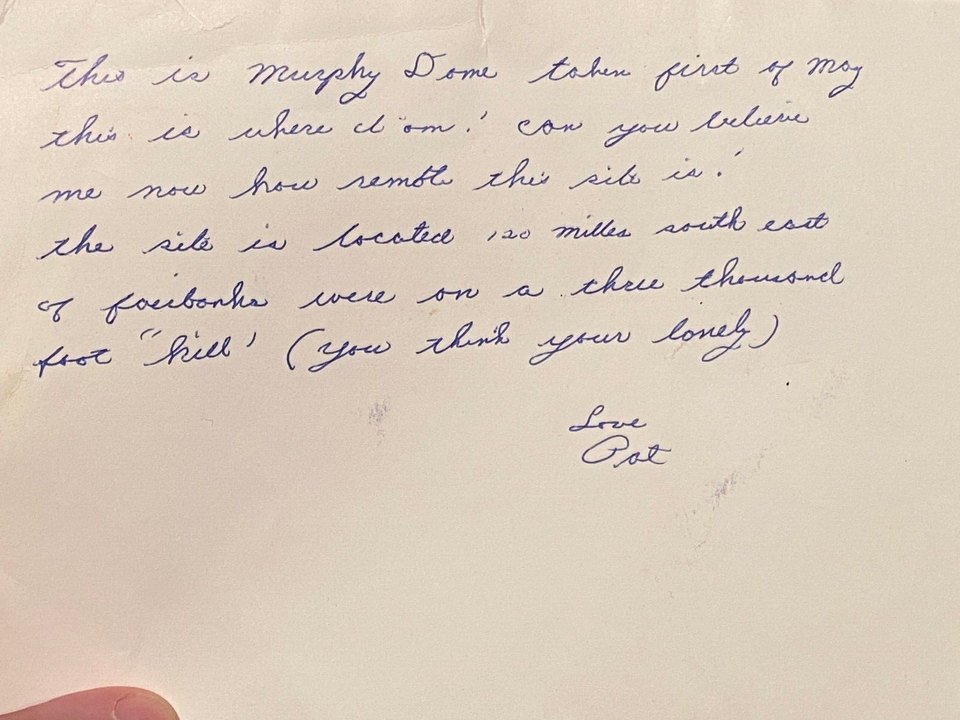 This is Murphy Dome taken first of May
this is where I am! can you believe
me now how remote this site is!
the site is located 120 milles south east
of fairbanks were on a three thousand
foot "hill" (you think your lonely)
Love
Pat